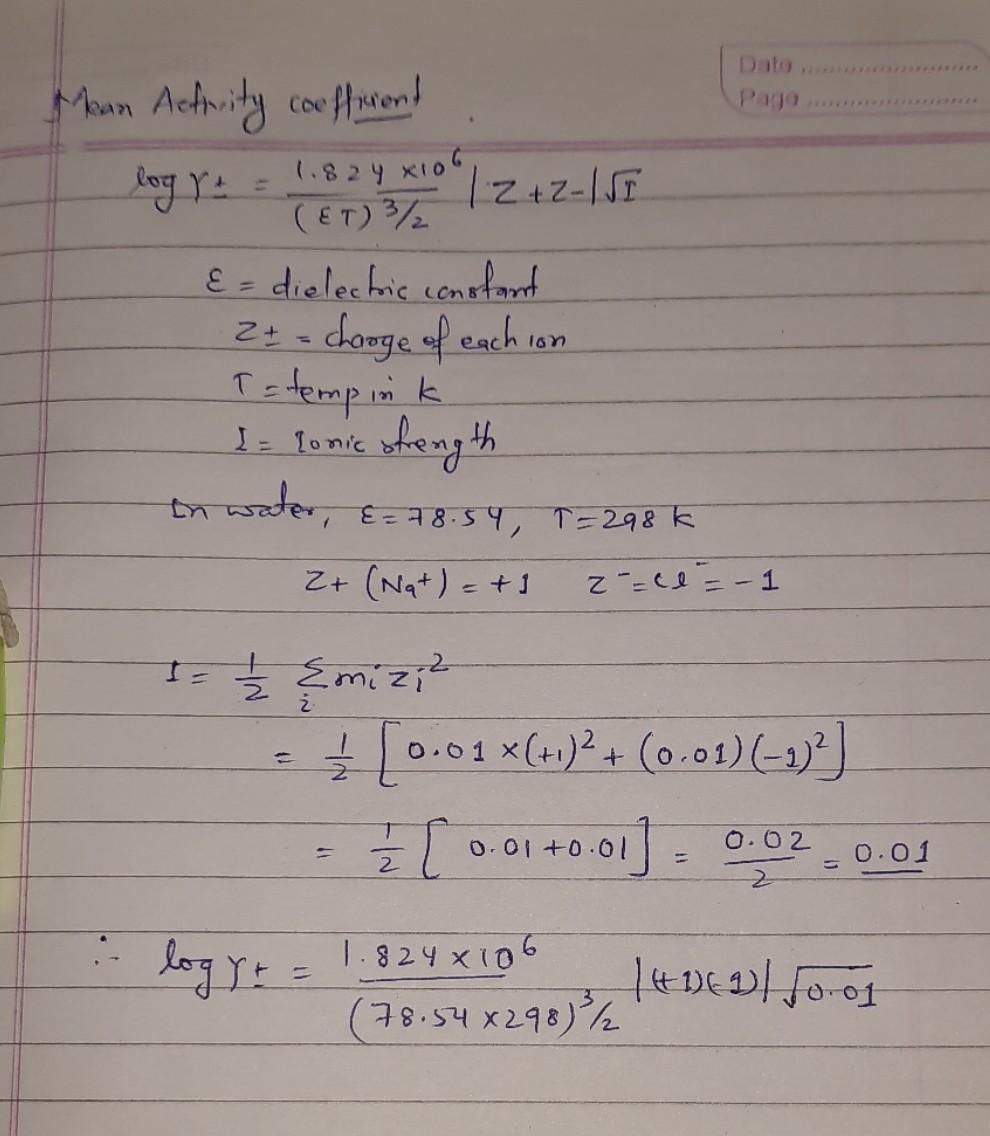 Date
Page
Mean Activity coefficient
log γ± = 1.824 ×10⁶ / (ET)³/₂ |Z+Z-|√I
ε = dielectric constant
Z± = charge of each ion
T = temp in k
I = Ionic strength
In water, ε=78.54, T=298 k
Z+ (Na+) = +1 Z⁻=Cl⁻= -1
I = 1/2 Σᵢ mi zi²
= 1/2 [0.01 ×(+1)² + (0.01)(-1)²]
= 1/2 [0.01+0.01] = 0.02/2 = 0.01
∴ log γ± = 1.824 ×10⁶ / (78.54 ×298)³/₂ |(+1)(-1)| √0.01